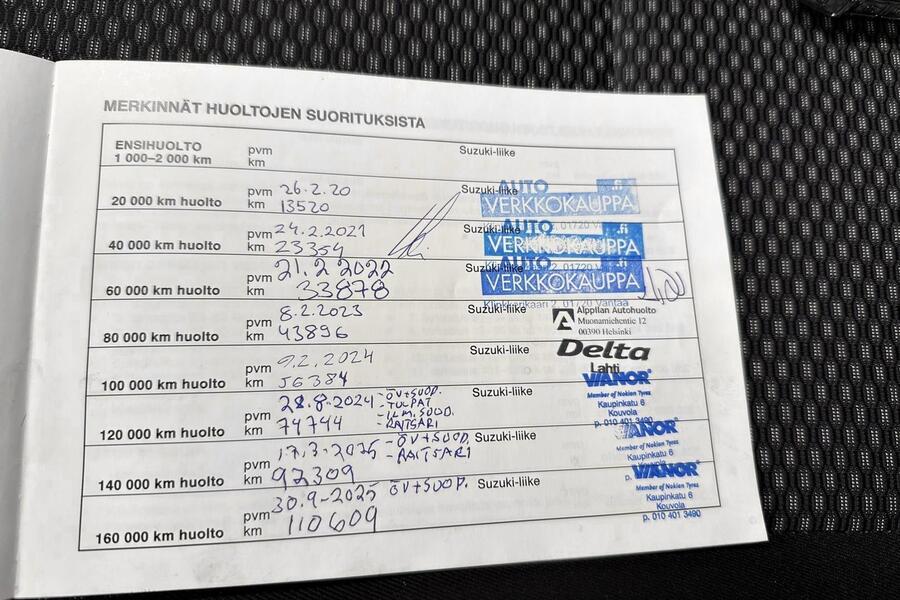 MERKINNÄT HUOLTOJEN SUORITUKSISTA
ENSIHUOLTO
1 000–2 000 km
pvm
km
Suzuki-liike
20 000 km huolto
pvm 26.2.20
km 13520
Suzuki-liike
AUTO .fi
VERKKOKAUPPA
01720
40 000 km huolto
pvm 24.2.2021
km 23354
Suzuki-liike
AUTO .fi
VERKKOKAUPPA
2, 01720
60 000 km huolto
pvm 21.2.2022
km 33878
Suzuki-liike
AUTO .fi
VERKKOKAUPPA
Klinkkerikaari 2, 01720 Vantaa
80 000 km huolto
pvm 8.2.2023
km 43896
Suzuki-liike
Alppilan Autohuolto
Muonamiehentie 12
00390 Helsinki
100 000 km huolto
pvm 9.2.2024
km 56384
Suzuki-liike
Delta
Lahti
120 000 km huolto
pvm 28.8.2024
km 74744
- ÖV+SUOD.
- TULPAT
- ILM.SUOD.
- RAITSARI
Suzuki-liike
VIANOR
Member of Nokian Tyres
Kaupinkatu 6
Kouvola
p. 010 401 3490
140 000 km huolto
pvm 17.3.2025
km 92309
- ÖV+SUOD.
- RAITSARI
Suzuki-liike
VIANOR
Member of Nokian Tyres
Kaupinkatu 6
Kouvola
p.
160 000 km huolto
pvm 30.9-2025
km 110609
ÖV+SUOD.
Suzuki-liike
VIANOR
Member of Nokian Tyres
Kaupinkatu 6
Kouvola
p. 010 401 3490